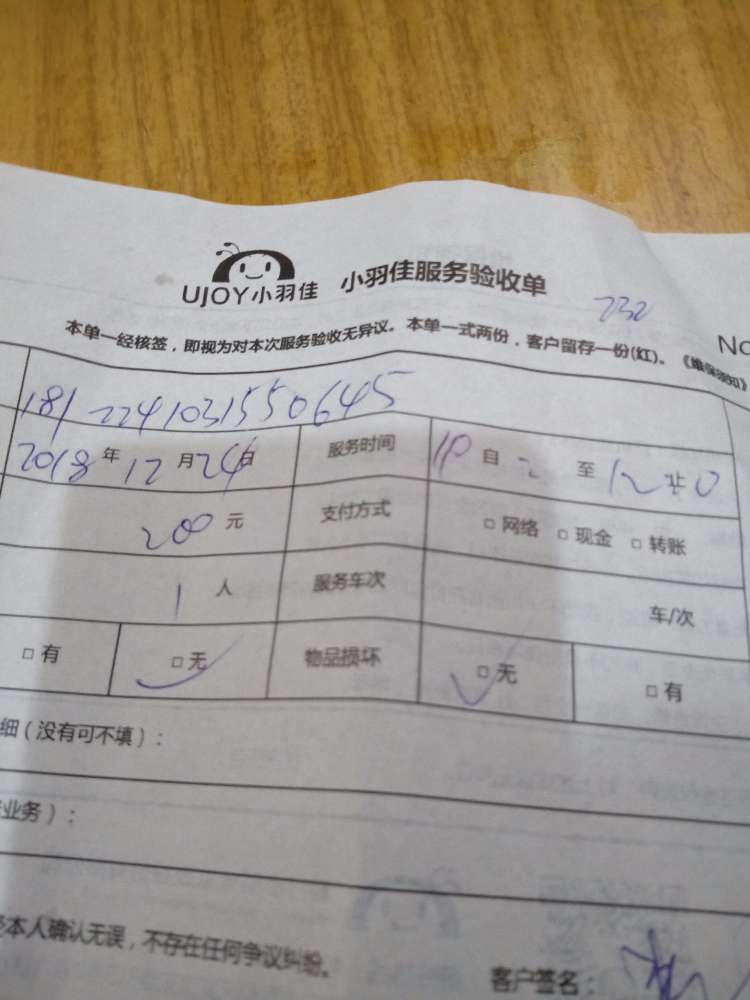 UJOY小羽佳 小羽佳服务验收单
232
No
本单一经核签，即视为对本次服务验收无异议。本单一式两份，客户留存一份(红)。《维保须知》
181 2241031550645
2018年12月24日 服务时间 自 至
200元 支付方式 □ 网络 □ 现金 □ 转账
1人 服务车次 车/次
□ 有 □ 无 物品损坏 □ 无 □ 有
细（没有可不填）：
业务）：
本人确认无误，不存在任何争议纠纷。
客户签名：